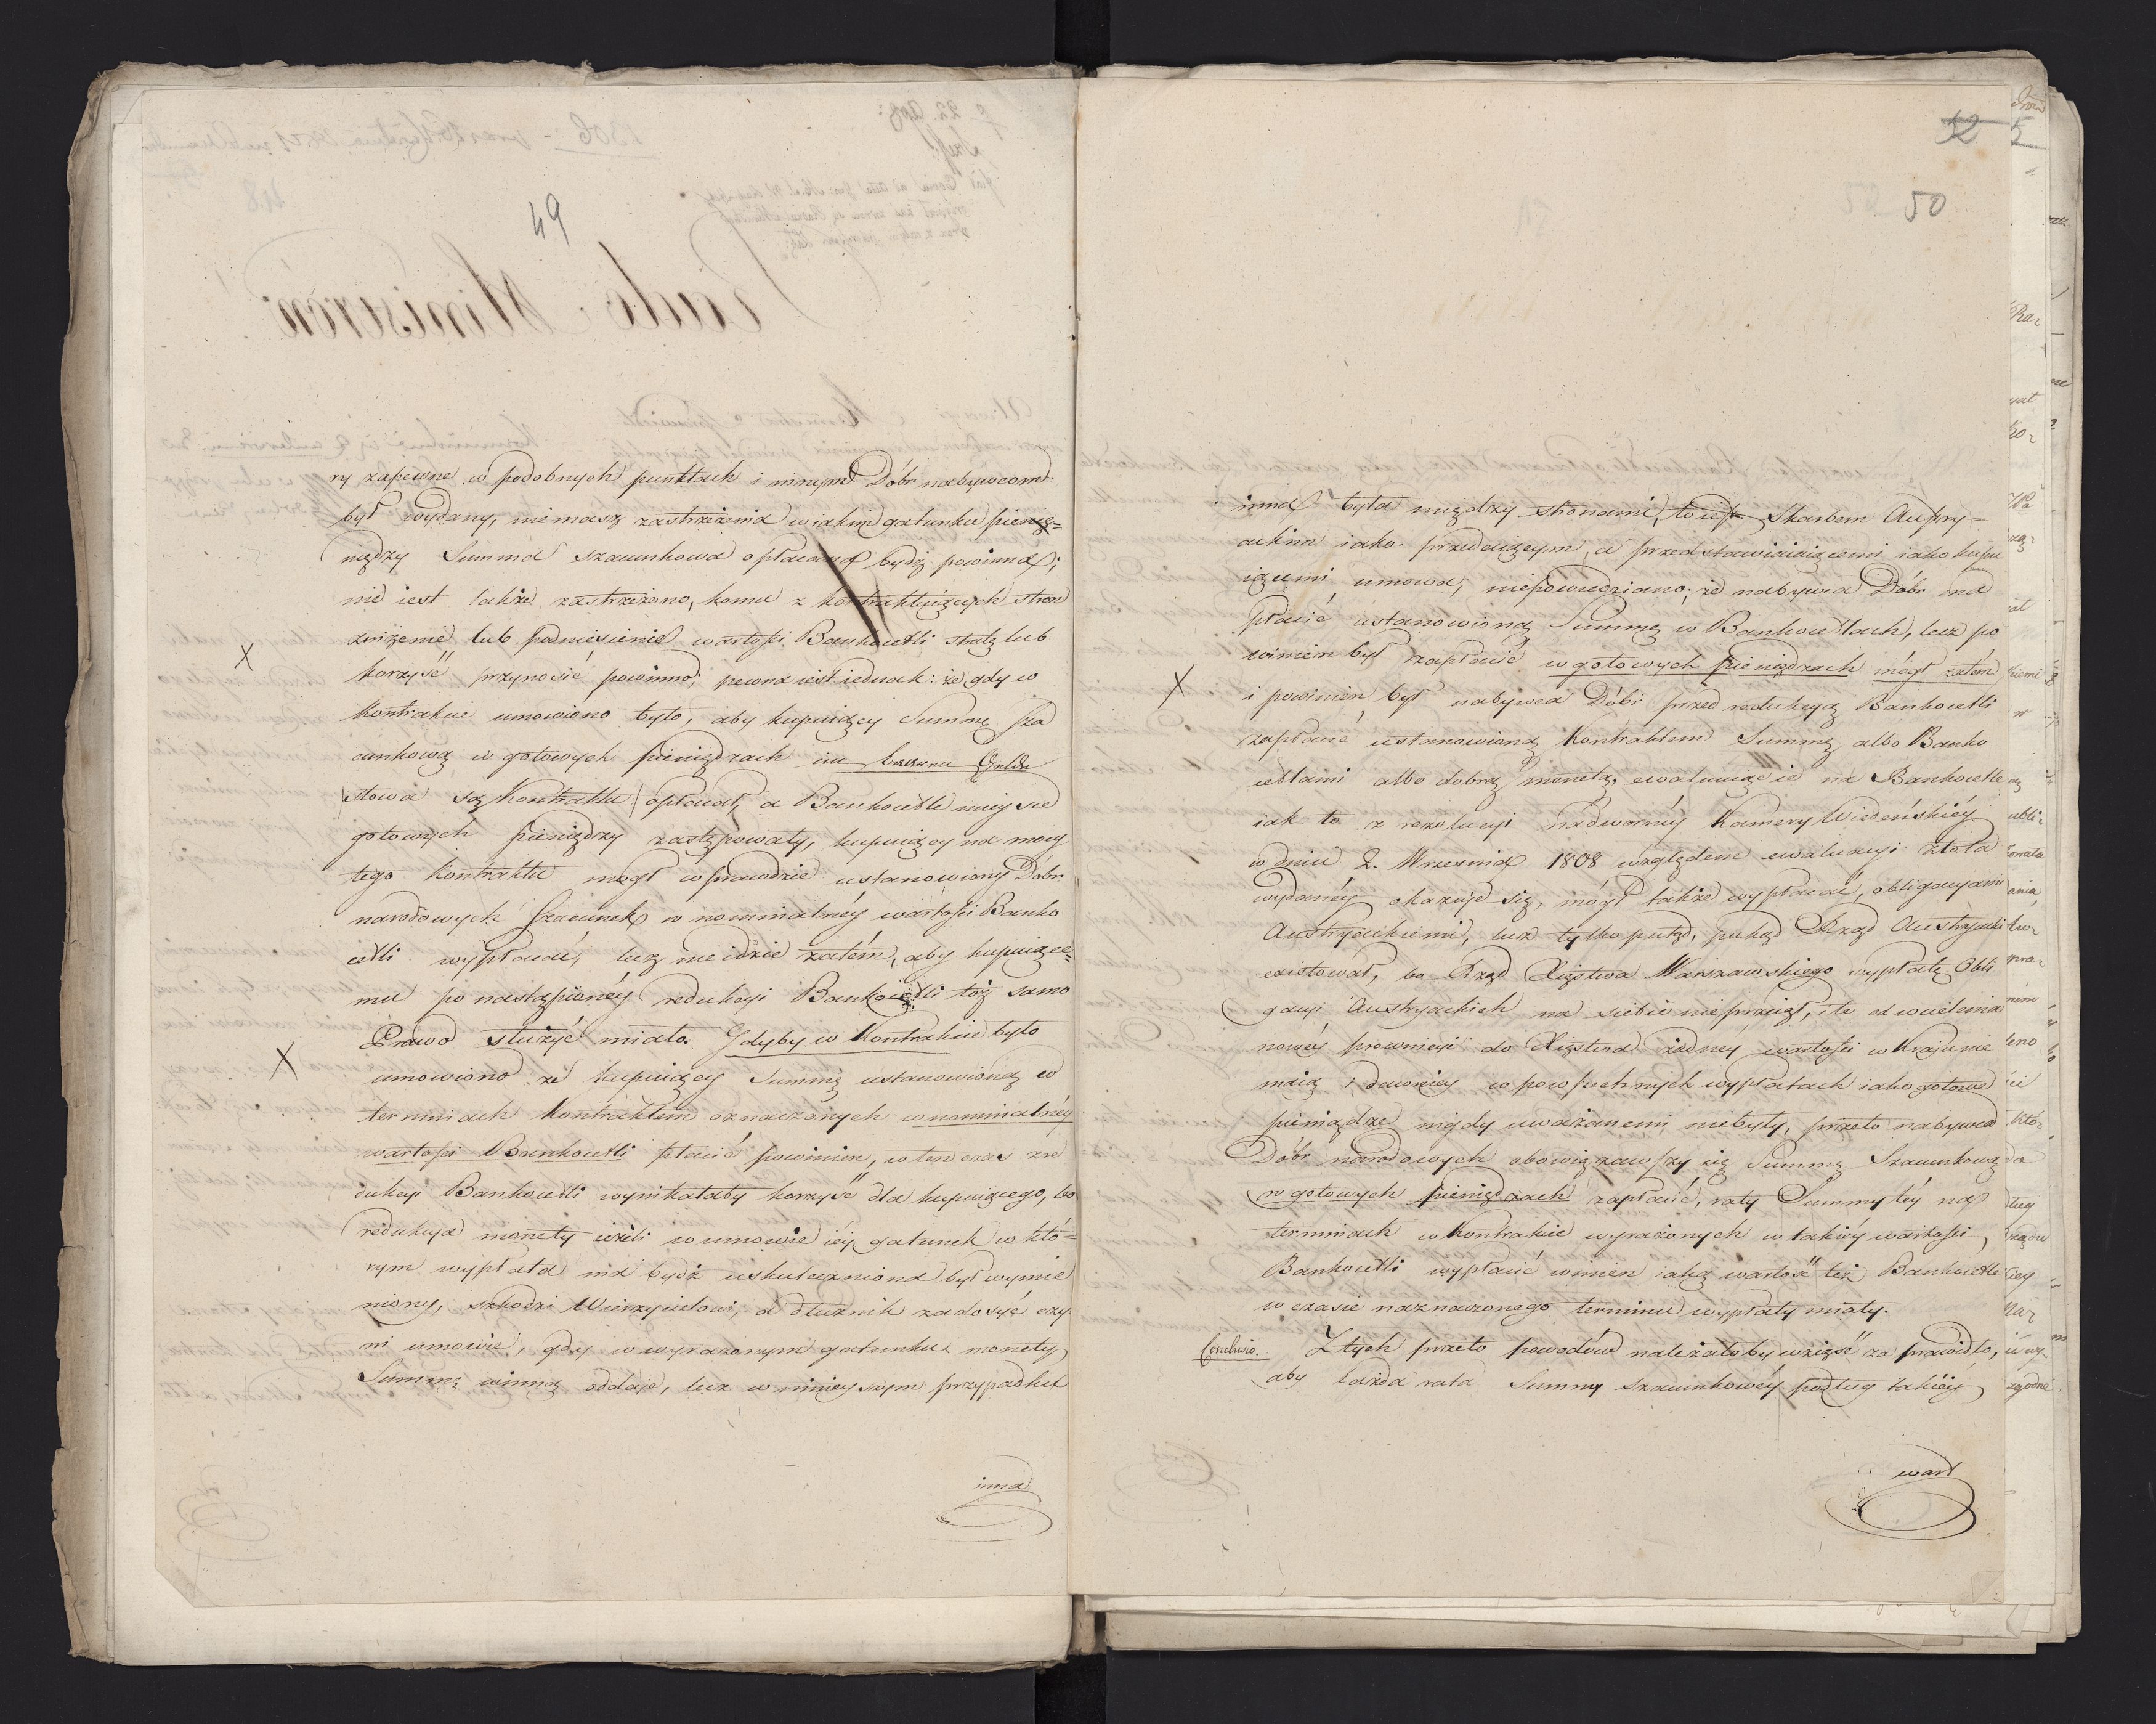 49
ry zapewne w podobnych punktach i innym Dóbr nabywcom
był wydany, niemasz zastrzeżenia w iakim gatunku pienię=
niędzy Summa szacunkowa opłacaną bydź powinna;
nie iest także zastrzeżono, komu z kontraktuiących stron
zniżenie lub podniesienie wartości Bankocetli stratę lub
X
korzyść przynosić powinno; pewna iest iednak: że gdy w
Kontrakcie umowiono było, aby kupuiący Summę sza
cunkową w gotowych pieniądzach im baarem Gelde
/słowa są Kontraktu/ opłacał, a Bankocetle mieysce
gotowych pieniędzy zastępowały, kupuiący na mocy
tego Kontraktu mógł wprawdzie ustanowiony Dóbr
narodowych Szacunek w nominalnéy wartości Banko
cetli wypłacać, lecz nie idzie zatém, aby kupuiące=
mu po nastąpionéy redukcyi Bankocetli toż samo
Prawo służyć miało. Gdyby w Kontrakcie było
X
umowiono że kupuiący Summę ustanowioną w
terminach Kontraktem oznaczonych w nominalnéy
wartości Bankocetli płacić powinien, w ten czas z re
dukcyi Bankocetli wynikałaby korzyść dla kupuiącego, bo
redukcya monety ieżeli w umowie iéy gatunek w któ=
rym wypłata ma bydź uskuteczniona był wymie
niony, szkodzi Wierzycielowi, a dłużnik zadosyć czy
ni umowie, gdy w wyrażonym gatunku monety
Summę winną oddaje, lecz w ninieyszym przypadku
inna
52
50
inna była między stronami, to iest Skarbem Austry=
ackim iako przedaiącym, a przedstawiaiącemi iako kupu
iącemi umowa, niepowiedziano; że nabywca Dóbr ma
płacić ustanowioną Summę w Bankocetlach, lecz po
winien był zapłacić w gotowych pieniądzach mógł zatém
X
i powinien był nabywca Dóbr przed redukcyą Bankocetli
zapłacić ustanowioną Kontraktem Summę albo Banko
cetlami albo dobrą monetą, ewaluuiąc ie na Bankocetle
iak to z rezolucyi nadwornéy Kamery Wiedeńskiéy
w dniu 2. Września 1808 względem ewaluacyi złota
wydanéy okazuje się, mógł także wypłacać, obligacyami
Austryackiemi, lecz tylko potąd, pokąd Rząd Austryacki
existował, bo Rząd Xięstwa Warszawskiego wypłatę Obli
gacyi Austryackich na siebie nieprzyiął, i te od wcielenia
nowéy prowincyi do Xięstwa żadnéy wartości w Kraju nie
maią i dawniey w powszechnych wypłatach iako gotowe
pieniądze nigdy uważanemi niebyły, przeto nabywca
Dóbr narodowych obowiązawszy się Summę Szacunkową
w gotowych pieniądzach zapłacić, raty Summy téy na
terminach w Kontrakcie wyrażonych w takiéy wartości
Bankocetli wypłacić winien iaką wartość też Bankocetle
w czasie naznaczonego terminu wypłaty miały.
Conclusio. Z tych przeto powodów należałoby wziąść za prawidło,
aby każda rata Summy szacunkowéy podług takiéy
wart